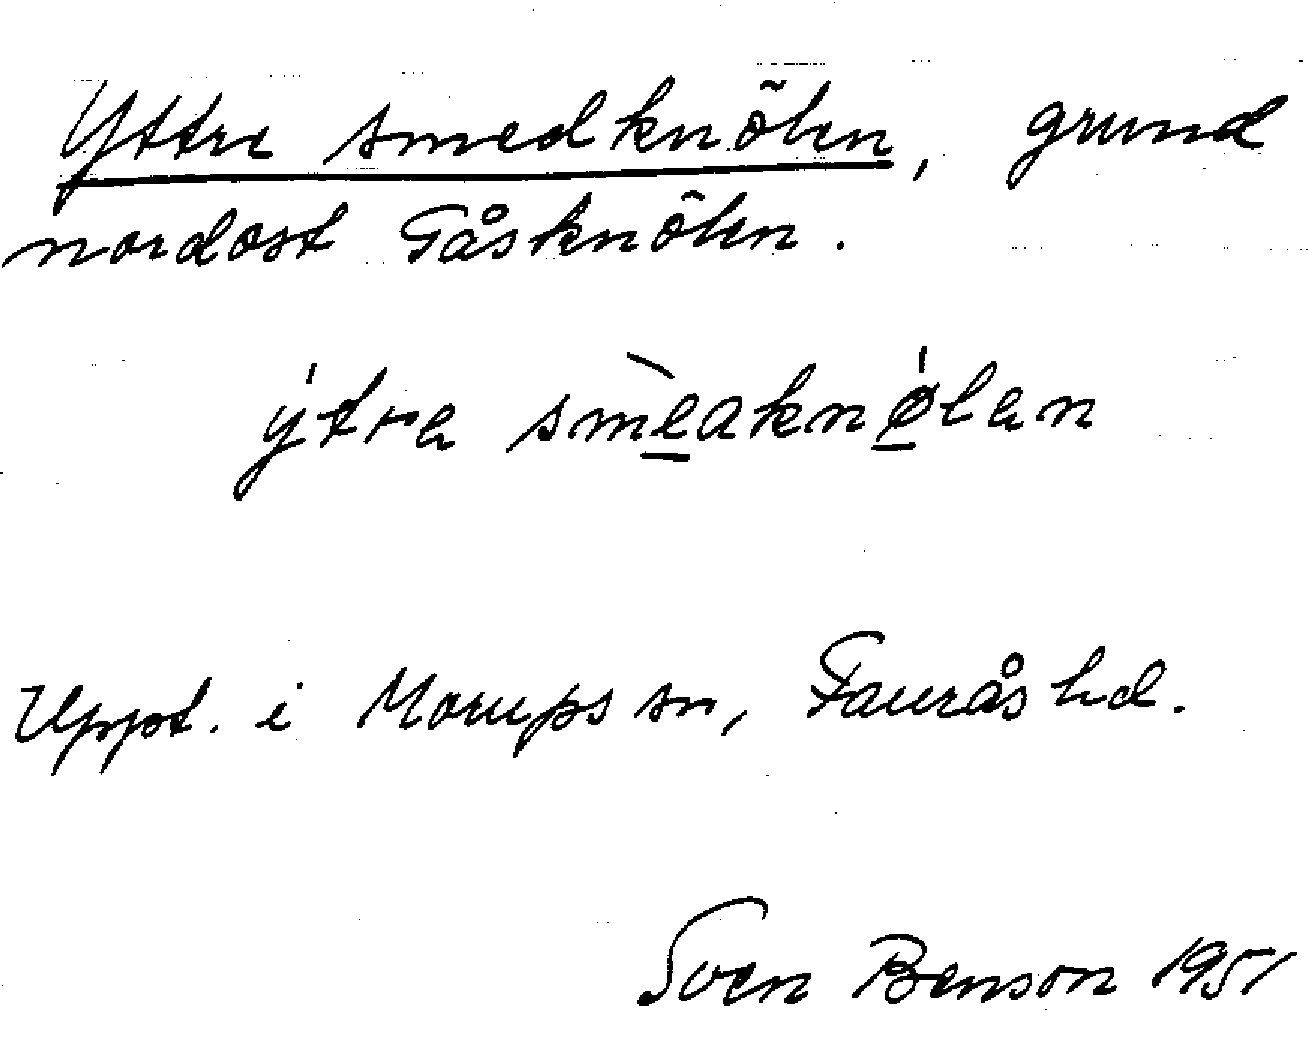 Yttre smedknölen, grund
nordost Gåsknölen.
ýtra smèaknǿlan
Uppt. i Morups sn, Faurås hd.
Sven Benson 1951